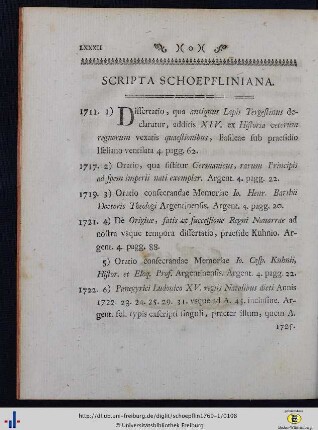 LXXXII
SCRIPTA SCHOEPFLINIANA.
1711. 1) Dissertatio, qua antiquus Lapis Tergestinus de-
claratur, additis XIV. ex Historia veterum
regnorum vexatis quaestionibus, Basileae sub praesidio
Iselianо ventilata 4. pagg. 62.
1717. 2) Oratio, qua sistitur Germanicus, rarum Principis
ad spem imperii nati exemplar. Argent. 4. pagg. 22.
1719. 3) Oratio consecrandae Memoriae Io. Henr. Barthii
Doctoris Theologi Argentinensis. Argent. 4. pagg. 20.
1721. 4) De Origine, fatis et successione Regni Navarrae ad
nostra vsque tempora dissertatio, praeside Kuhnio. Ar-
gent. 4. pagg. 88.
5) Oratio consecrandae Memoriae Io. Casp. Kuhnii,
Histor. et Eloq. Prof. Argentinensis. Argent. 4. pagg. 22.
1722. 6) Panegyrici Ludovico XV. regis Natalibus dicti Annis
1722. 23. 24. 25. 29. 31. vsque ad A. 43. inclusiue. Ar-
gent. fol. typis exscripti singuli, praeter illum, quem A.
1725.
http://dl.ub.uni-freiburg.de/diglit/schoepflin1769-1/0108
© Universitätsbibliothek Freiburg